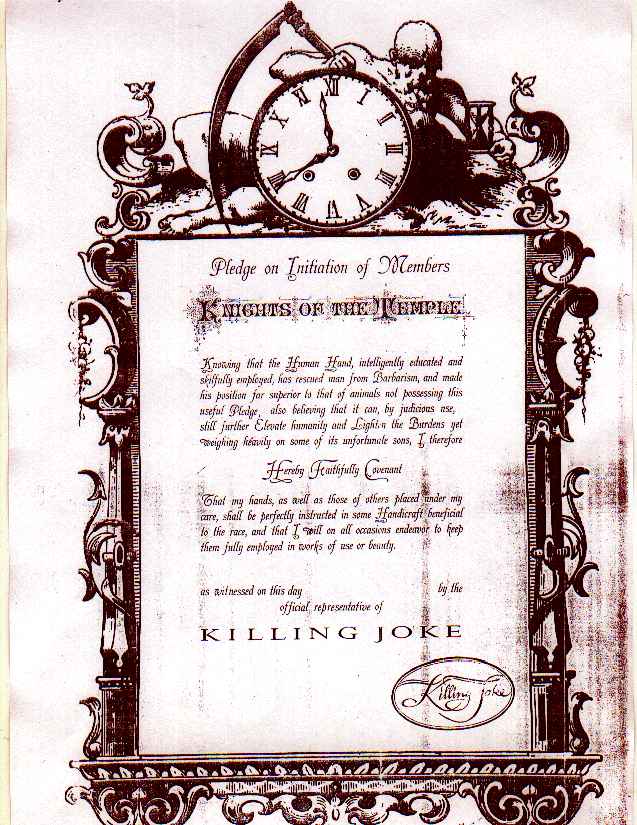 XII I II III IIII V VI VII VIII IX X XI
Pledge on Initiation of Members
KNIGHTS OF THE TEMPLE
Knowing that the Human Hand, intelligently educated and
skilfully employed, has rescued man from Barbarism, and made
his position far superior to that of animals not possessing this
useful Pledge, also believing that it can, by judicious use,
still further Elevate humanity and Lighten the Burdens yet
weighing heavily on some of its unfortunate sons, I therefore
Hereby Faithfully Covenant
That my hands, as well as those of others placed under my
care, shall be perfectly instructed in some Handicraft beneficial
to the race, and that I will on all occasions endeavor to keep
them fully employed in works of use or beauty.
as witnessed on this day by the
official representative of
KILLING JOKE
Killing Joke